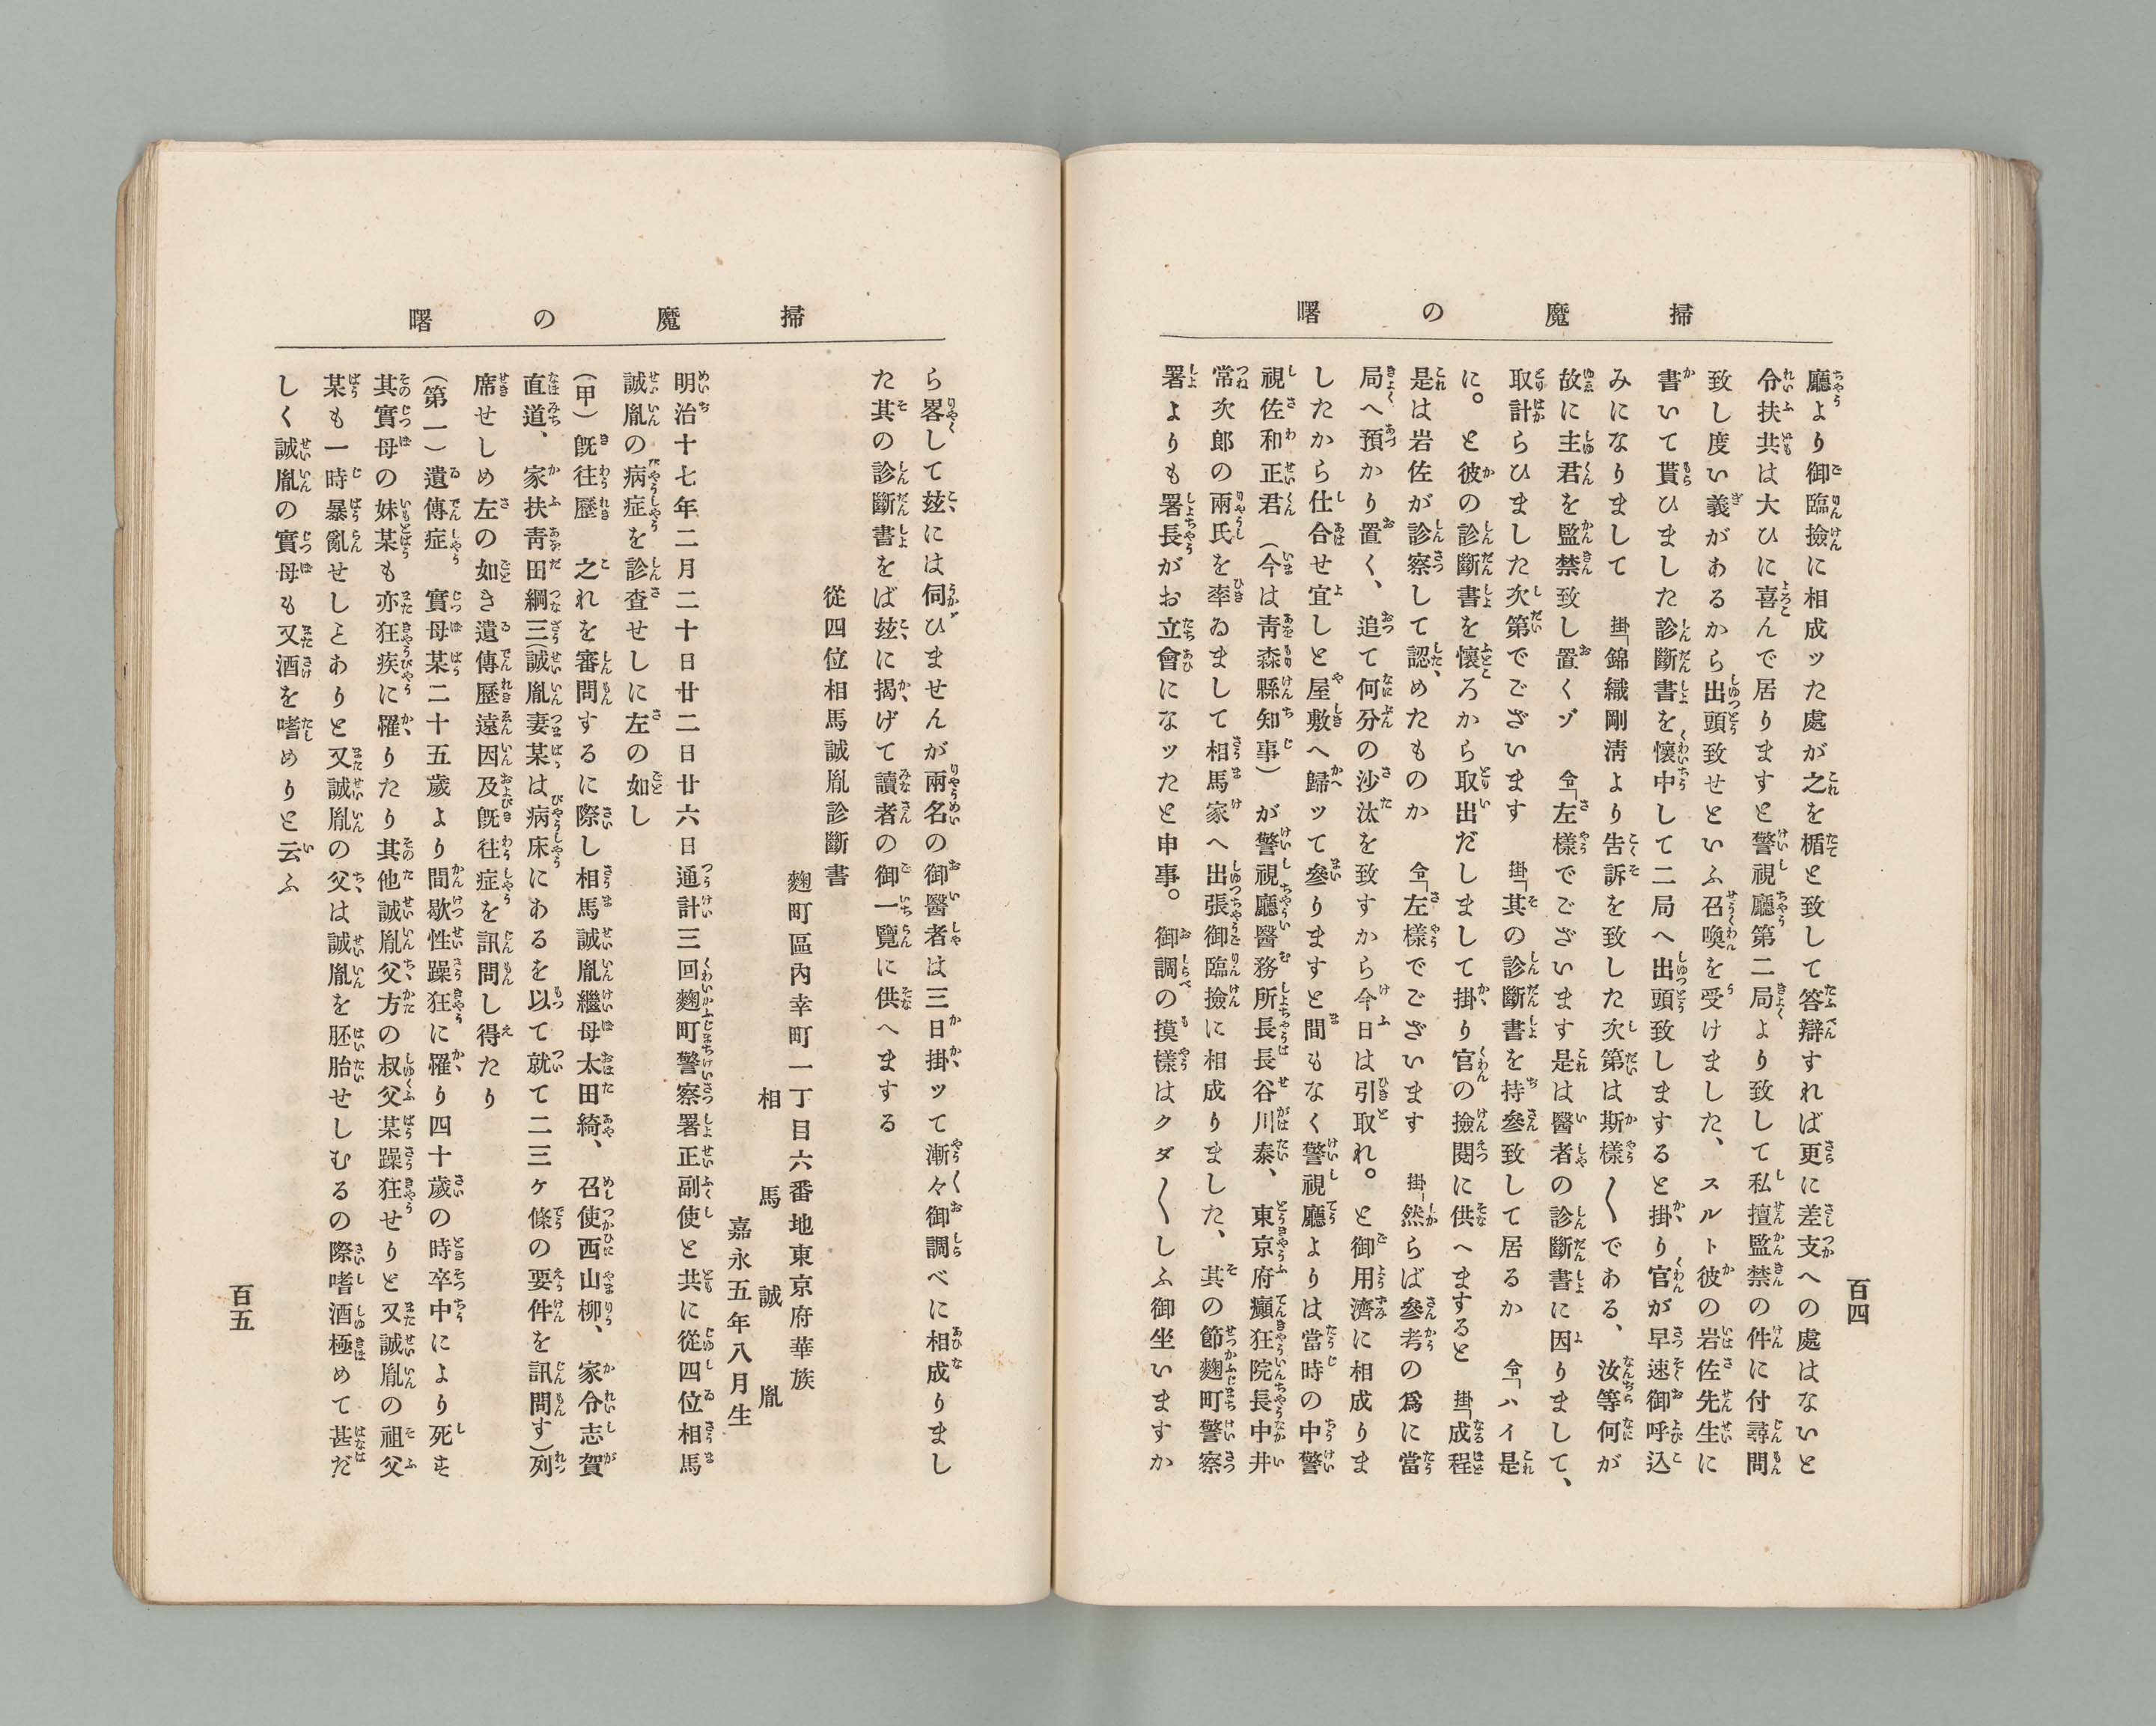 掃魔の曙
百四
廳より御臨撿に相成ッた處が之を楯と致して答辯すれば更に差支への處はないと
令扶共は大ひに喜んで居りますと警視廳第二局より致して私擅監禁の件に付尋問
致し度い義があるから出頭致せといふ召喚を受けました、スルト彼の岩佐先生に
書いて貰ひました診斷書を懷中して二局へ出頭致しますると掛り官が早速御呼込
みになりまして 掛「錦織剛淸より告訴を致した次第は斯樣〱である、汝等何が
故に主君を監禁致し置くゾ 令「左樣でございます是は醫者の診斷書に因りまして、
取計らひました次第でございます 掛「其の診斷書を持參致して居るか 令「ハイ是
に。と彼の診斷書を懷ろから取出だしまして掛り官の撿閱に供へますると 掛「成程
是は岩佐が診察して認めたものか 令「左樣でございます 掛「然らば參考の爲に當
局へ預かり置く、追て何分の沙汰を致すから今日は引取れ。と御用濟に相成りま
したから仕合せ宜しと屋敷へ歸ッて參りますと間もなく警視廳よりは當時の中警
視佐和正君（今は靑森縣知事）が警視廳醫務所長長谷川泰、東京府癲狂院長中井
常次郎の兩氏を率ゐまして相馬家へ出張御臨撿に相成りました、其の節麴町警察
署よりも署長がお立會になッたと申事。御調の摸樣はクダ〱しふ御坐いますか
掃魔の曙
ら畧して玆には伺ひませんが兩名の御醫者は三日掛ッて漸々御調べに相成りまし
た其の診斷書をば玆に揭げて讀者の御一覽に供へまする
從四位相馬誠胤診斷書
麴町區內幸町一丁目六番地東京府華族
相馬誠胤
嘉永五年八月生
明治十七年二月二十日廿二日廿六日通計三回麴町警察署正副使と共に從四位相馬
誠胤の病症を診査せしに左の如し
（甲）旣往歷 之れを審問するに際し相馬誠胤繼母太田綺、召使西山柳、家令志賀
直道、家扶靑田綱三（誠胤妻某は病床にあるを以て就て二三ケ條の要件を訊問す）列
席せしめ左の如き遺傳歷遠因及旣往症を訊問し得たり
（第一）遺傳症 實母某二十五歲より間歇性躁狂に罹り四十歲の時卒中により死す
其實母の妹某も亦狂疾に罹りたり其他誠胤父方の叔父某躁狂せりと又誠胤の祖父
某も一時暴亂せしことありと又誠胤の父は誠胤を胚胎せしむるの際嗜酒極めて甚だ
しく誠胤の實母も又酒を嗜めりと云ふ
百五